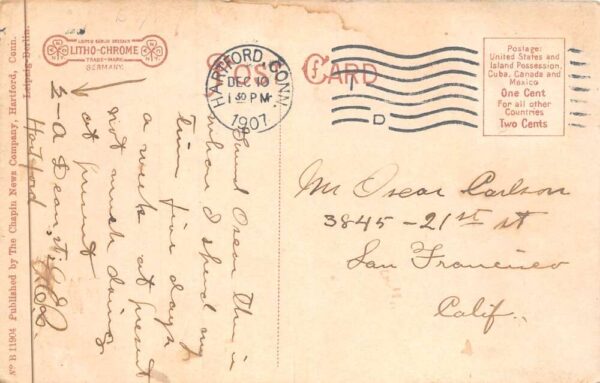 LEIPZIG BERLIN DRESDEN
LITHO-CHROME
TRADE-MARK
GERMANY.
POST CARD
HARTFORD, CONN.
DEC 10
1 30 PM
1907
D
Postage:
United States and
Island Possession,
Cuba, Canada and
Mexico
One Cent
For all other
Countries
Two Cents
Mr Oscar Carlson
3845-21st st
San Francisco
Calif.
Friend Oscar This is
when I spend my
time five days
a week at present
not much doing
at present
3-A Dean st
Hartford
No B 11904 Published by The Chapin News Company, Hartford, Conn.
Leipzig-Berlin.